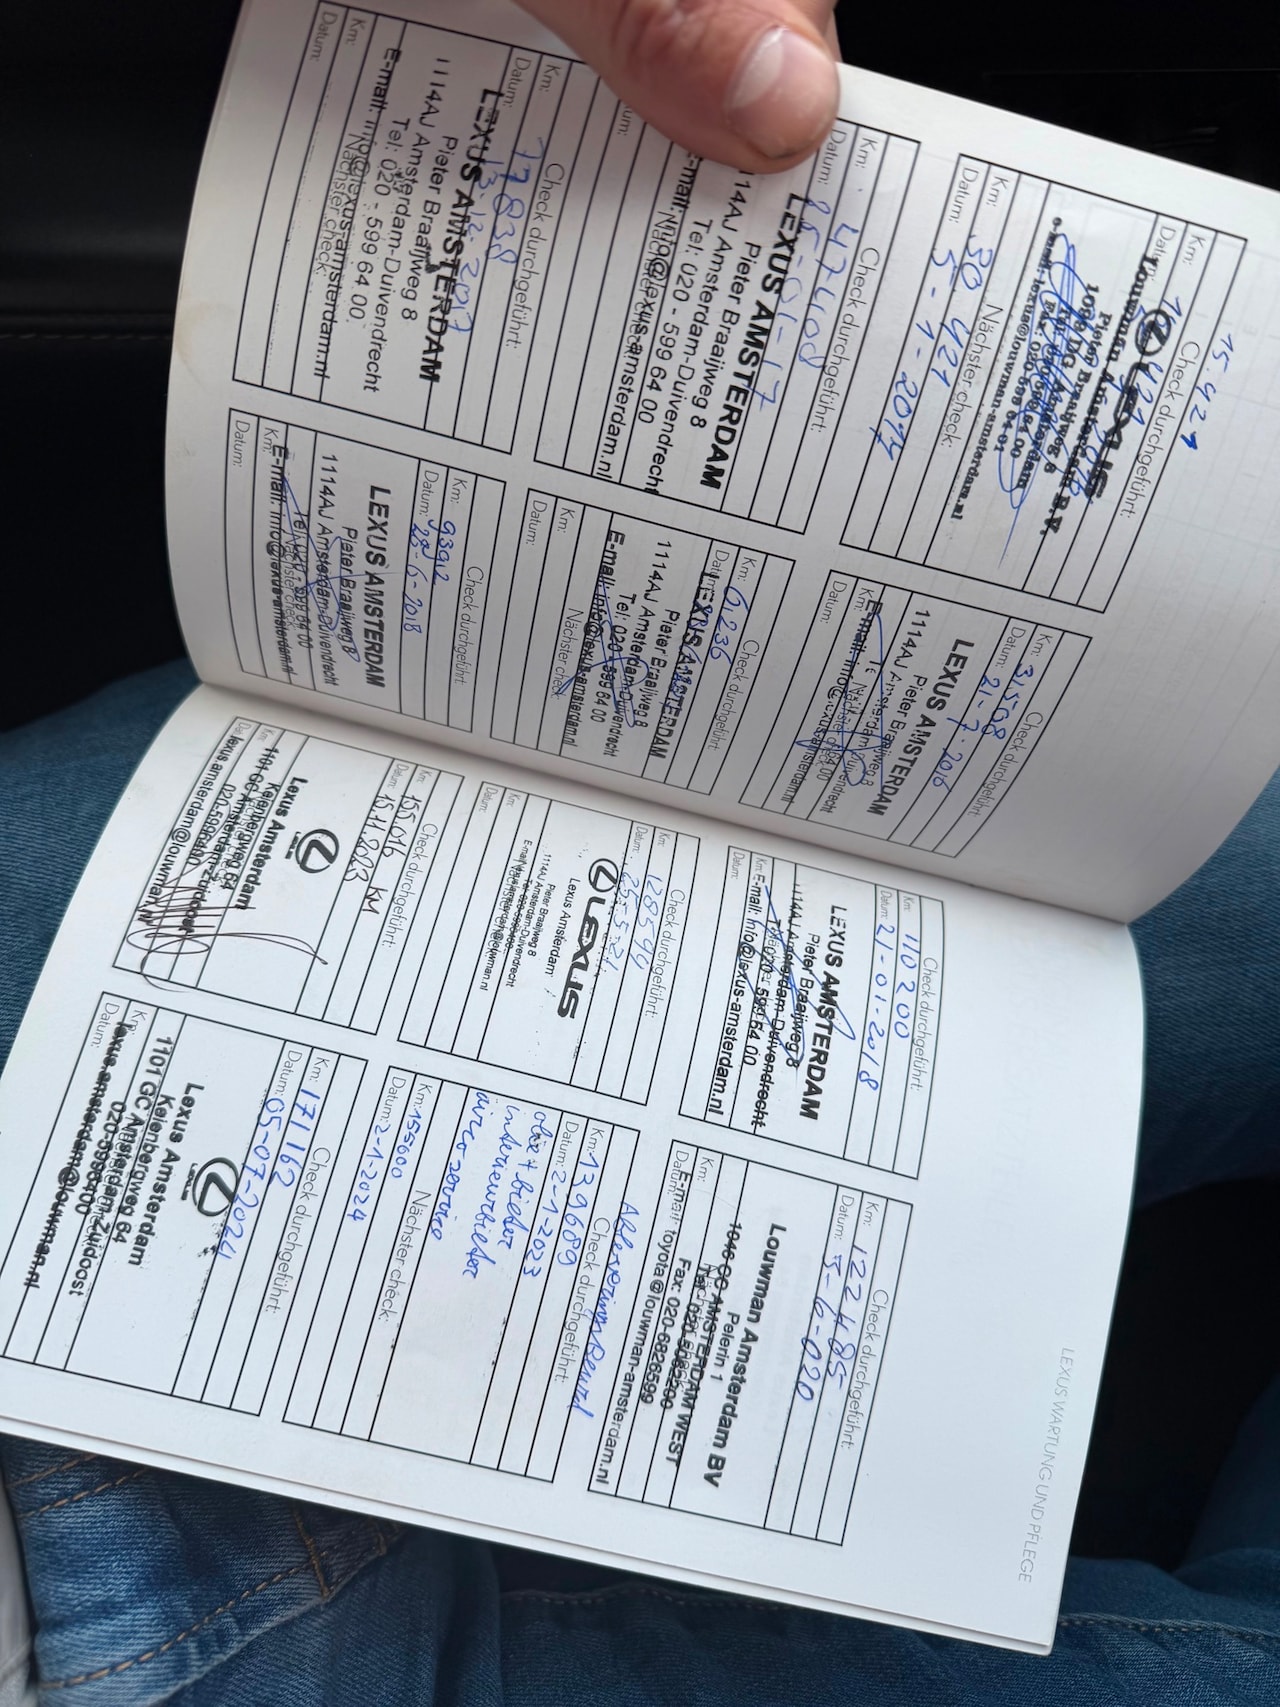 15.421
Check durchgeführt:
Km:
LEXUS
Louwman Amsterdam B.V.
Pieter Braaijweg 8
e-mail: lexus@louwman-amsterdam.nl
Nächster check:
Km: 30 421
Datum: 5-1-2017
Check durchgeführt:
Km: 31508
Datum: 21-7-2016
LEXUS AMSTERDAM
Pieter Braaijweg 8
1114AJ Amsterdam-Duivendrecht
Km:
Datum:
Check durchgeführt:
Km: 47408
Datum: 25-01-17
LEXUS AMSTERDAM
Pieter Braaijweg 8
1114AJ Amsterdam-Duivendrecht
Tel: 020 - 599 64 00
E-mail: info@lexus-amsterdam.nl
Nächster check:
Check durchgeführt:
Km: 61236
Datum:
LEXUS AMSTERDAM
Pieter Braaijweg 8
1114AJ Amsterdam-Duivendrecht
Tel: 020 - 599 64 00
E-mail: info@lexus-amsterdam.nl
Nächster check:
Km:
Datum:
Check durchgeführt:
Km: 77838
Datum: 13-12-2017
LEXUS AMSTERDAM
Pieter Braaijweg 8
1114AJ Amsterdam-Duivendrecht
Tel: 020 - 599 64 00
E-mail: info@lexus-amsterdam.nl
Nächster check:
Km:
Datum:
Check durchgeführt:
Km: 93912
Datum: 28-6-2018
LEXUS AMSTERDAM
Pieter Braaijweg 8
1114AJ Amsterdam-Duivendrecht
Tel: 020 - 599 64 00
E-mail: info@lexus-amsterdam.nl
Nächster check:
Km:
Datum:
LEXUS WARTUNG UND PFLEGE
Check durchgeführt:
Km: 110200
Datum: 21-01-2018
LEXUS AMSTERDAM
Pieter Braaijweg 8
1114AJ Amsterdam-Duivendrecht
Tel: 020 - 599 64 00
E-mail: info@lexus-amsterdam.nl
Km:
Datum:
Check durchgeführt:
Km: 122485
Datum: 5-6-020
Louwman Amsterdam BV
Pelerin 1
AMSTERDAM WEST
Fax: 020-6826599
E-mail toyota@louwman-amsterdam.nl
Km:
Datum:
Check durchgeführt:
Km: 128544
Datum: 25-5-21
LEXUS
Lexus Amsterdam
Pieter Braaijweg 8
1114AJ Amsterdam-Duivendrecht
Km:
Datum:
Check durchgeführt:
Km: 139689
Datum: 2-1-2023
olie + bieter
interieurbieter
airco service
Nächster check:
Km: 155600
Datum: 2-1-2024
Check durchgeführt:
Km: 155.016 KM
Datum: 15.11.2023
LEXUS
Lexus Amsterdam
Keienbergweg 64
1101 GC Amsterdam Zuidoost
020-5996400
lexus.amsterdam@louwman.nl
Km:
Check durchgeführt:
Km: 171162
Datum: 05-07-2024
LEXUS
Lexus Amsterdam
Keienbergweg 64
1101 GC Amsterdam Zuidoost
020-5996400
lexus.amsterdam@louwman.nl
Km:
Datum: